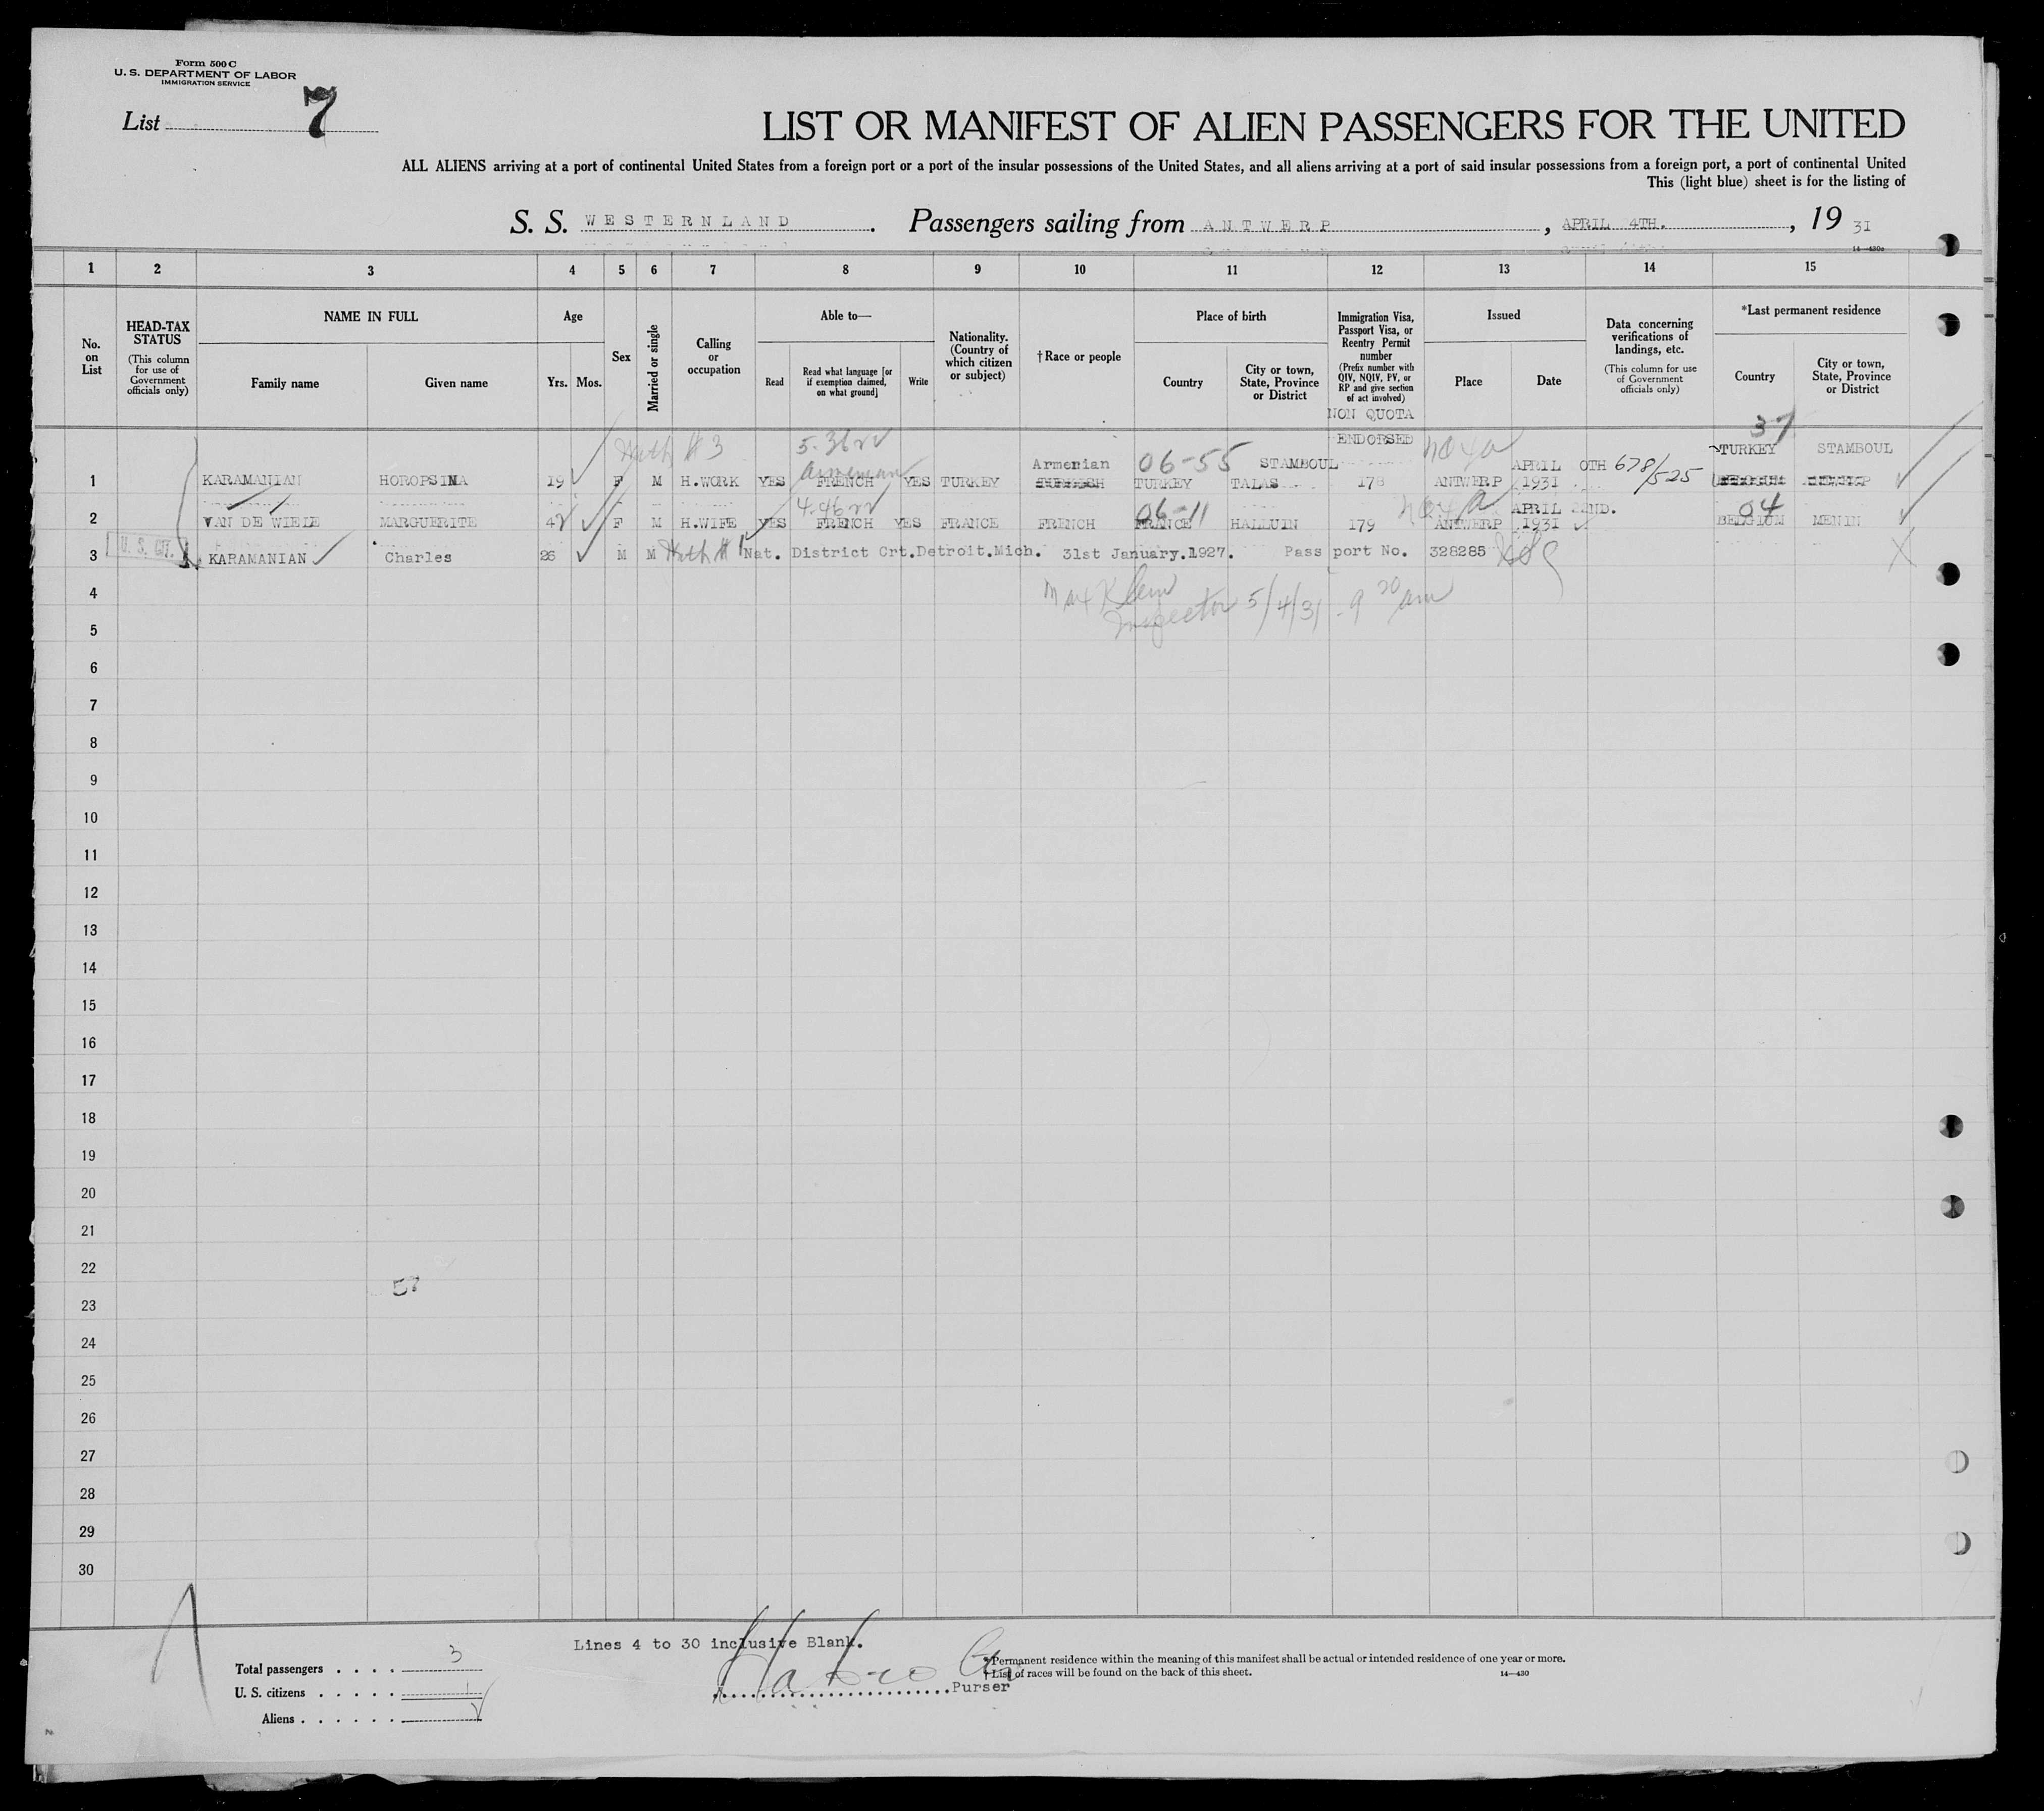 Form 500 C
U. S. DEPARTMENT OF LABOR
IMMIGRATION SERVICE
List 7
LIST OR MANIFEST OF ALIEN PASSENGERS FOR THE UNITED
ALL ALIENS arriving at a port of continental United States from a foreign port or a port of the insular possessions of the United States, and all aliens arriving at a port of said insular possessions from a foreign port, a port of continental United
This (light blue) sheet is for the listing of
S. S. WESTERNLAND. Passengers sailing from ANTWERP, APRIL 4TH., 1931
14—430c
1 2 3 4 5 6 7 8 9 10 11 12 13 14 15
No. on List
HEAD-TAX STATUS (This column for use of Government officials only)
NAME IN FULL
Family name Given name
Age
Yrs. Mos.
Sex
Married or single
Calling or occupation
Able to—
Read Read what language [or if exemption claimed, on what ground] Write
Nationality. (Country of which citizen or subject)
†Race or people
Place of birth
Country City or town, State, Province or District
Immigration Visa, Passport Visa, or Reentry Permit number (Prefix number with QIV, NQIV, PV, or RP and give section of act involved)
NON QUOTA
ENDORSED
Issued
Place Date
Data concerning verifications of landings, etc. (This column for use of Government officials only)
*Last permanent residence
Country City or town, State, Province or District
# 3 5-36 37
Armenian Armenian 06-55 STAMBOUL APRIL 678/525 TURKEY STAMBOUL
1 KARAMANIAN HOROPSIMA 19 F M H.WORK YES FRENCH YES TURKEY TURKEY TALAS 178 ANTWERP 1931
4-46 06-11 APRIL 04
2 VAN DE WIELE MARGUERITE 42 F M H.WIFE YES FRENCH YES FRANCE FRENCH FRANCE HALLUIN 179 ANTWERP 1931 BELGIUM MENIN
U. S. CIT.
3 KARAMANIAN Charles 26 M M Nat. District Crt.Detroit.Mich. 31st January.1927. Pass port No. 328285
4 Max Klein
Inspector 5/4/31 - 9 20 am
5
6
7
8
9
10
11
12
13
14
15
16
17
18
19
20
21
22
57
23
24
25
26
27
28
29
30
Lines 4 to 30 inclusive Blank.
Total passengers . . . . 3
U. S. citizens . . . . . 1
Aliens . . . . . .
Purser
*Permanent residence within the meaning of this manifest shall be actual or intended residence of one year or more.
†List of races will be found on the back of this sheet.
14—430